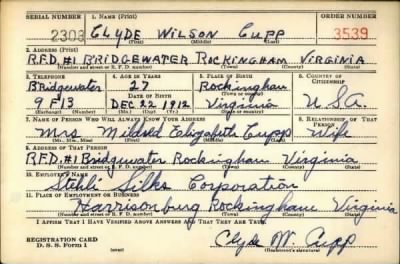 SERIAL NUMBER 1. NAME (Print) ORDER NUMBER
2303 CLYDE WILSON CUPP 3539
(First) (Middle) (Last)
2. ADDRESS (Print)
R.F.D. #1 BRIDGEWATER ROCKINGHAM VIRGINIA
(Number and street or R. F. D. number) (Town) (County) (State)
3. TELEPHONE 4. AGE IN YEARS 5. PLACE OF BIRTH 6. COUNTRY OF CITIZENSHIP
Bridgewater 27 Rockingham
DATE OF BIRTH (Town or county)
9 F 13 DEC 22 1912 Virginia U.S.A.
(Exchange) (Number) (Mo.) (Day) (Yr.) (State or country)
7. NAME OF PERSON WHO WILL ALWAYS KNOW YOUR ADDRESS 8. RELATIONSHIP OF THAT PERSON
Mrs Mildred Elizabeth Cupp Wife
(Mr., Mrs., Miss) (First) (Middle) (Last)
9. ADDRESS OF THAT PERSON
R.F.D. #1 Bridgewater Rockingham Virginia
(Number and street or R. F. D. number) (Town) (County) (State)
10. EMPLOYER'S NAME
Stehli Silks Corporation
11. PLACE OF EMPLOYMENT OR BUSINESS
Harrisonburg Rockingham Virginia
(Number and street or R. F. D. number) (Town) (County) (State)
I AFFIRM THAT I HAVE VERIFIED ABOVE ANSWERS AND THAT THEY ARE TRUE.
REGISTRATION CARD
D. S. S. Form 1 (over) Clyde W. Cupp
(Registrant's signature)